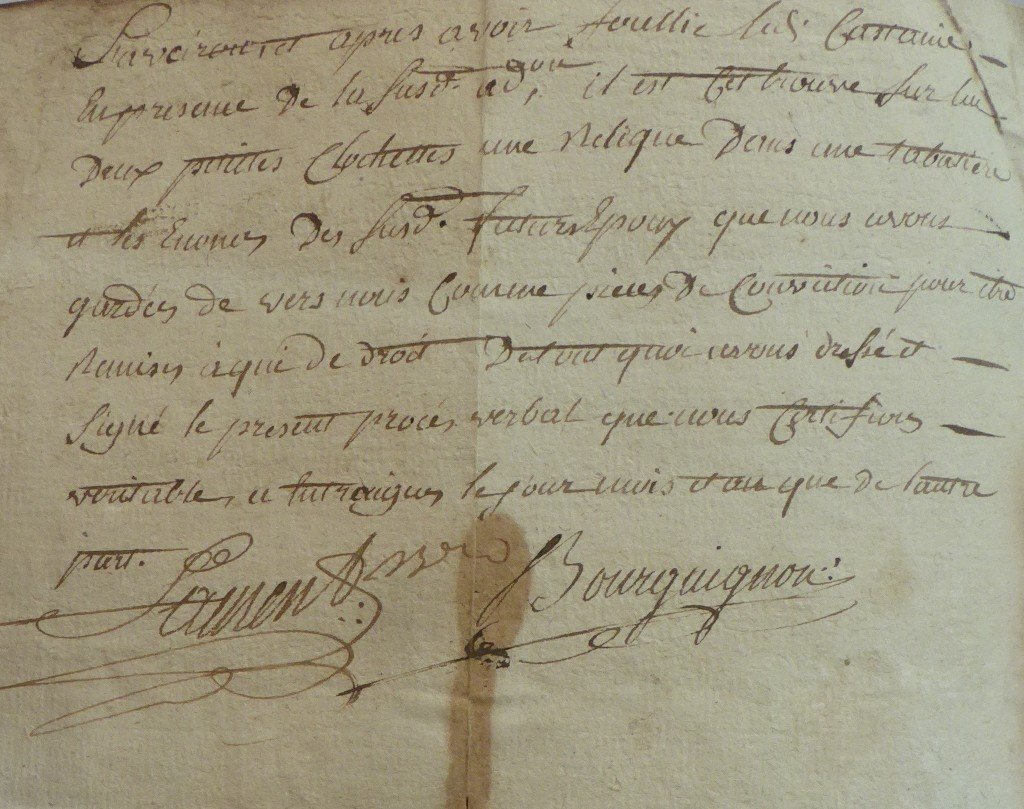 et apres avoir fouillé led. Castanié
En presence De la Susd. adon, il est Cet trouvé Sur lui
Deux petites Clochettes une Relique Dans une tabatiere
et les Enonces Des Susd. futurs Epoux que nous avons
gardées de vers nous Comme pieces De Conviction pour etre
Remises a qui de droit De tout quoi avons dressé et
Signé le present procés verbal que nous Certifions
veritable, a Entraigues le jour mois et an que de lautre
part.
Bourguignon